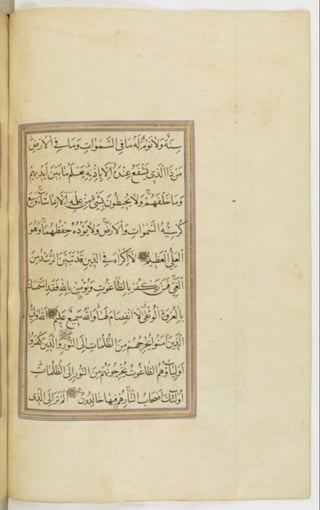 سِنَةٌ وَلَا نَوْمٌ لَهُ مَا فِي السَّمٰوَاتِ وَمَا فِي الْاَرْضِ
مَنْ ذَا الَّذِي يَشْفَعُ عِنْدَهُ اِلَّا بِاِذْنِهِ يَعْلَمُ مَا بَيْنَ اَيْدِيهِمْ
وَمَا خَلْفَهُمْ وَلَا يُحِيطُونَ بِشَيْءٍ مِنْ عِلْمِهِ اِلَّا بِمَا شَاءَ وَسِعَ
كُرْسِيُّهُ السَّمٰوَاتِ وَالْاَرْضَ وَلَا يَؤُدُهُ حِفْظُهُمَا وَهُوَ
الْعَلِيُّ الْعَظِيمُ لَا اِكْرَاهَ فِي الدِّينِ قَدْ تَبَيَّنَ الرُّشْدُ مِنَ
الْغَيِّ فَمَنْ يَكْفُرْ بِالطَّاغُوتِ وَيُؤْمِنْ بِاللّٰهِ فَقَدِ اسْتَمْسَكَ
بِالْعُرْوَةِ الْوُثْقٰى لَا انْفِصَامَ لَهَا وَاللّٰهُ سَمِيعٌ عَلِيمٌ اَللّٰهُ وَلِيُّ
الَّذِينَ اٰمَنُوا يُخْرِجُهُمْ مِنَ الظُّلُمَاتِ اِلَى النُّورِ وَالَّذِينَ كَفَرُوا
اَوْلِيَاؤُهُمُ الطَّاغُوتُ يُخْرِجُونَهُمْ مِنَ النُّورِ اِلَى الظُّلُمَاتِ
اُولٰئِكَ اَصْحَابُ النَّارِ هُمْ فِيهَا خَالِدُونَ اَلَمْ تَرَ اِلَى الَّذِي